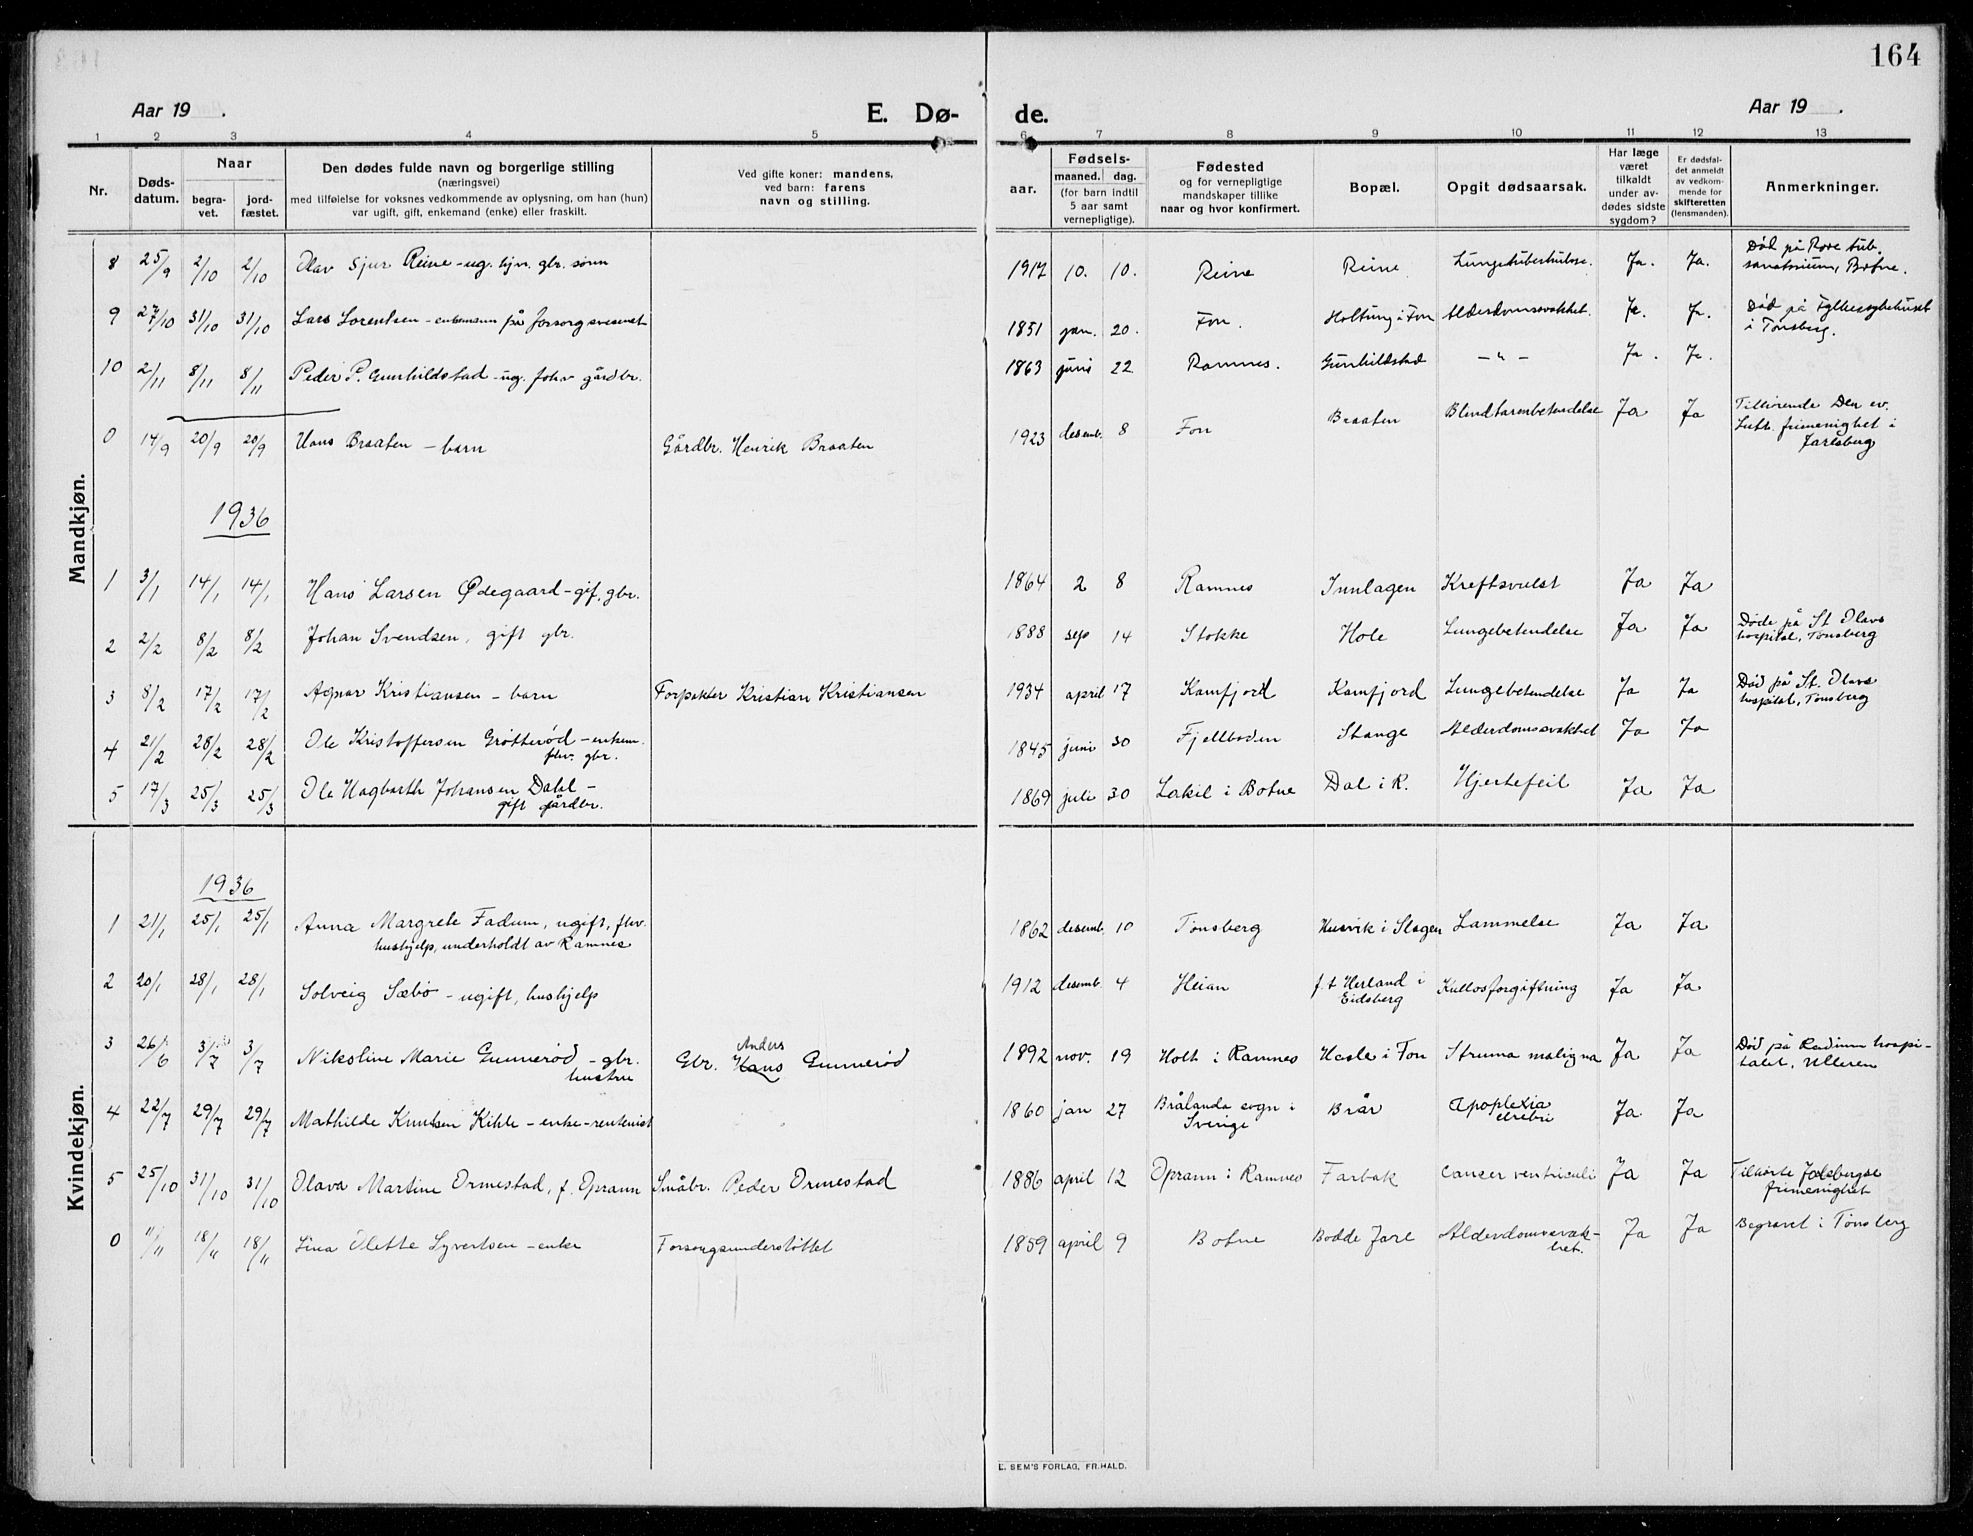 164
Aar 19 .
E. Dø-
de.
Aar 19 .
1 2 3 4 5 6 7 8 9 10 11 12 13
Nr.
Døds-
datum.
Naar
begra-
vet.
jord-
fæstet.
Den dødes fulde navn og borgerlige stilling
(næringsvei)
med tilføielse for voksnes vedkommende av oplysning, om han (hun)
var ugift, gift, enkemand (enke) eller fraskilt.
Ved gifte koner: mandens,
ved barn: farens
navn og stilling.
aar.
Fødsels-
maaned. dag.
(for barn indtil
5 aar samt
vernepligtige).
Fødested
og for vernepligtige
mandskaper tillike
naar og hvor konfirmert.
Bopæl.
Opgit dødsaarsak.
Har læge
været
tilkaldt
under av-
dødes sidste
sygdom?
Er dødsfal-
det anmeldt
av vedkom-
mende for
skifteretten
(lensmanden).
Anmerkninger.
Mandkjøn.
8 25/9 2/10 2/10 Olav Sjur Reine - ug. hjv. gbr. sønn 1917 10. 10. Reine Reine Lungetuberkulose. Ja. Ja. Død på Rove tub.
sanatorium, Botne.
9 27/10 31/10 31/10 Lars Lorentsen - enkemann på forsorgsvesenet 1851 jan. 20. Fon. Holtung i Fon Alderdomssvakhet. Ja. Ja. Død på Fylkessykehuset
i Tønsberg.
10 2/11 8/11 8/11 Peder P. Gunhildstad - ug. forhv gårdbr. 1863 juni 22 Ramnes. Gunhildstad - " - Ja. Ja.
0 14/9 20/9 20/9 Hans Braaten - barn Gårdbr. Henrik Braaten 1923 desemb. 8 Fon Braaten Blindtarmbetendelse Ja Ja Tilhørende Den ev.
Luth. frimenighet i
Jarlsberg
1936
1 3/1 14/1 14/1 Hans Larsen Ødegaard - gif. gbr. 1864 2 8 Ramnes Innlagen Kreftsvulst Ja Ja
2 2/2 8/2 8/2 Johan Svendsen, gift gbr. 1888 sep 14 Stokke Hole Lungebetendelse Ja Ja Døde på St Olavs
hospital, Tønsberg
3 8/2 17/2 17/2 Agnar Kristiansen - barn Forpakter Kristian Kristiansen 1934 april 17 Kamfjord Kamfjord Lungebetendelse Ja Ja Død på St. Olavs
hospital, Tønsberg
4 21/2 28/2 28/2 Ole Kristoffersen Grøtterød - enkem.
fhv. gbr. 1845 juni 30 Fjellboden Stange Alderdomssvakhet Ja Ja
5 17/3 25/3 25/3 Ole Hagbarth Johansen Dahl -
gift gårdbr. 1869 juli 30 Lakil i Botne Dal i R. Hjertefeil Ja Ja
Kvindekjøn.
1936
1 21/1 25/1 25/1 Anna Margrete Fadum, ugift, fhv.
hushjelp, underholdt av Ramnes 1862 desemb. 10 Tønsberg Husvik i Slagen Lammelse Ja Ja
2 20/1 28/1 28/1 Solveig Sæbø - ugift, hushjelp 1912 desemb. 4 Heian f.t Herland i
Eidsberg Kullosforgiftning Ja Ja
3 26/6 3/7 3/7 Nikoline Marie Gunnerød - gbr.
hustru Gbr. Hans Anders Gunnerød 1892 nov. 19 Holt i Ramnes Hasle i Fon Struma maligna Ja Ja Død på Radium hospi-
talet, Ulleren
4 22/7 29/7 29/7 Mathilde Knutsen Kihle - enke - rentenist 1860 jan 27 Brålanda sogn i
Sverige Brår Apoplexia
cerebri Ja Ja
5 25/10 31/10 31/10 Olava Martine Ormestad, f. Oprann Småbr. Peder Ormestad 1886 april 12 Oprann i Ramnes Farbak Cancer ventriculi Ja Ja Tilhørte Jarlsberg
frimenighet
0 11/11 18/11 18/11 Lina Olette Syvertsen - enke Forsorgsunderstøttet 1859 april 9 Botne Bodde Jarl Alderdomssvak-
het. Ja Ja Begravet i Tønsberg
E. SEM'S FORLAG, FR.HALD.